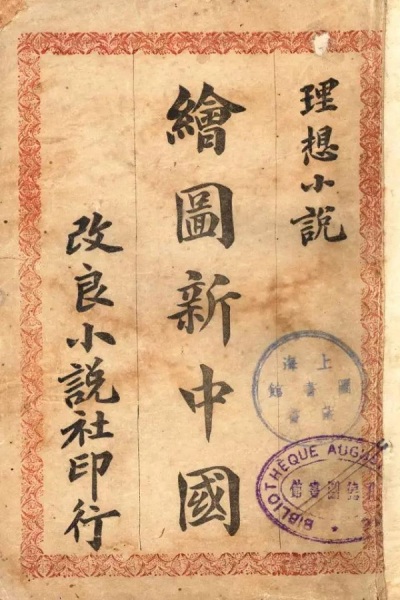 理想小說
繪圖新中國
改良小說社印行
上海
圖書館
BIBLIOTHÈQUE AUGU